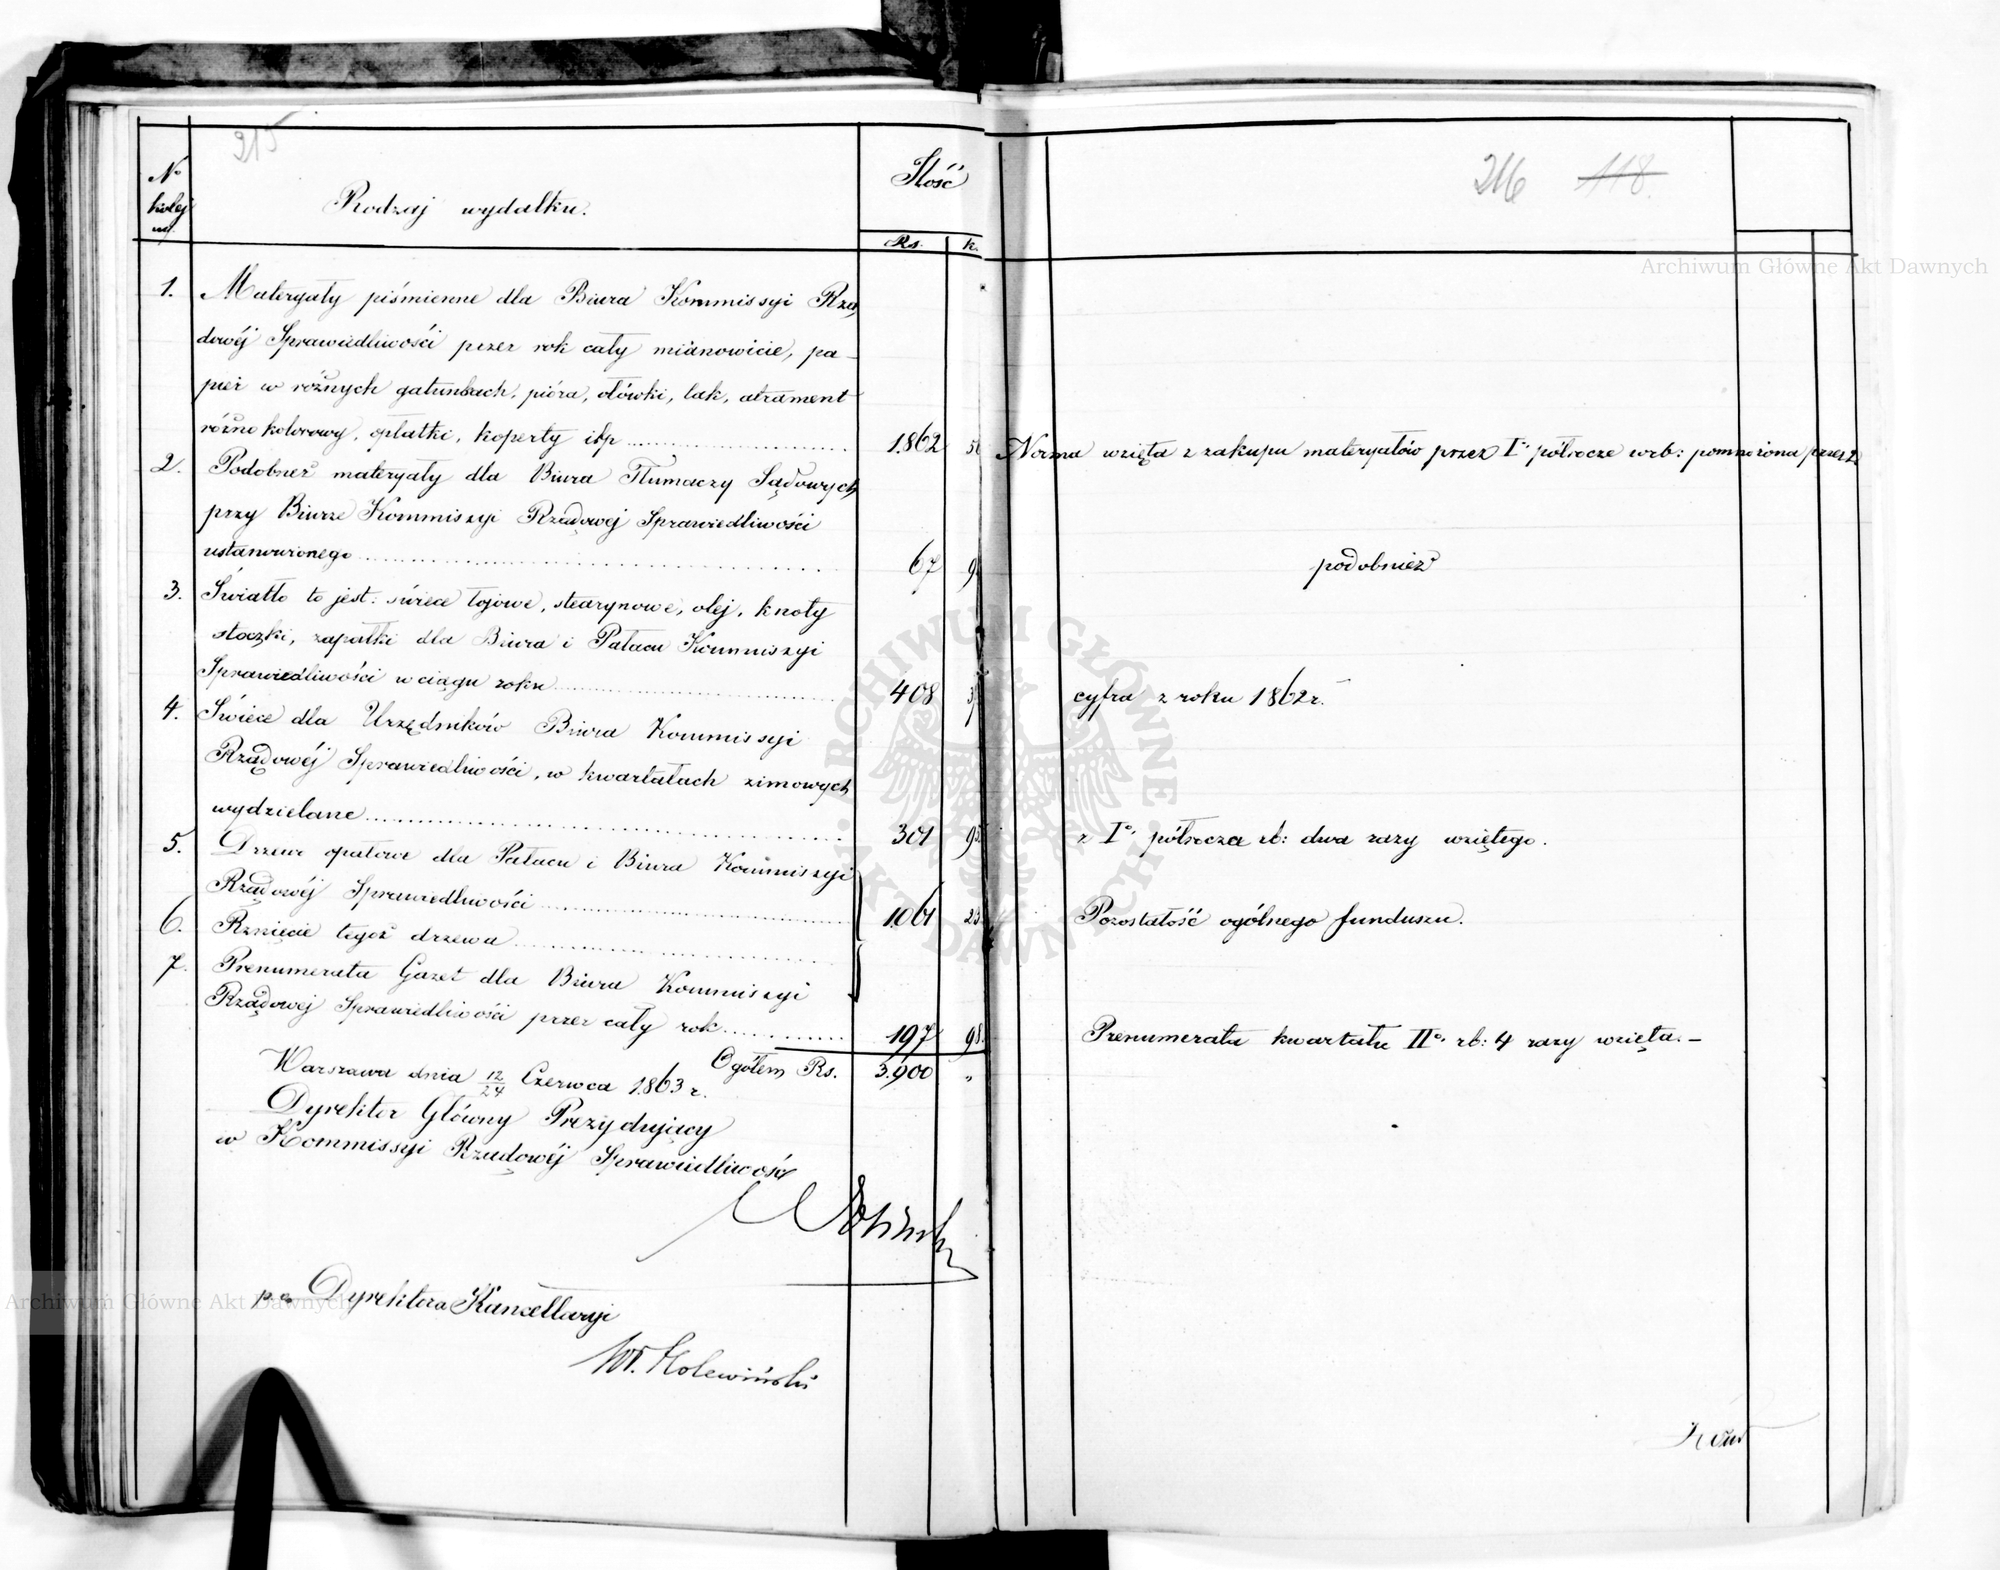 215
No kolej
Rodzaj wydatku.
Ilość
Rs. k.
1. Materyały piśmienne dla Biura Kommissyi Rzą
dowéj Sprawiedliwości przez rok cały mianowicie, pa-
pier w różnych gatunkach, pióra, ołówki, lak, atrament
różnokolorowy, opłatki, koperty itp 1862
2. Podobneż materyały dla Biura Tłumaczy Sądowych
przy Biurze Kommissyi Rządowej Sprawiedliwości
ustanowionego 67
3. Światło to jest: świece łojowe, stearynowe, olej, knoty
stoczki, zapałki dla Biura i Pałacu Kommissyi
Sprawiedliwości w ciągu roku 408
4. Świece dla Urzędników Biura Kommissyi
Rządowéj Sprawiedliwości, w kwartałach zimowych
wydzielane 301
5. Drzewo opałowe dla Pałacu i Biura Kommissyi
Rządowéj Sprawiedliwości 1061
6. Rznięcie tegoż drzewa
7. Prenumerata Gazet dla Biura Kommissyi
Rządowej Sprawiedliwości przez cały rok 197 98
Ogółem Rs. 3.900 "
Warszawa dnia 12/24 Czerwca 1863 r.
Dyrektor Główny Prezydujący
w Kommissyi Rządowéj Sprawiedliwości
p.o. Dyrektora Kancellaryi
Wł. Holewiński
216 118.
Norma wzięta z zakupu materyałów przez Io półrocze wrb: pomnożona przez 2
podobnież
cyfra z roku 1862 r.
z Io półrocza rb: dwa razy wziętego.
Pozostałość ogólnego funduszu.
Prenumerata kwartału IIo rb: 4 razy wzięta. -
Archiwum Główne Akt Dawnych
Archiwum Główne Akt Dawnych
ARCHIWUM GŁÓWNE AKT DAWNYCH